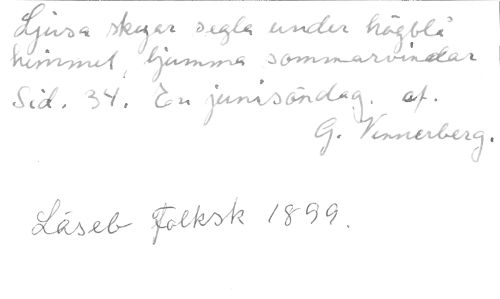 Ljusa skyar segla under högblå
himmel, ljumma sommarvindar
Sid. 34. En junisöndag. af.
G. Vennerberg.
Läseb Folksk 1899.